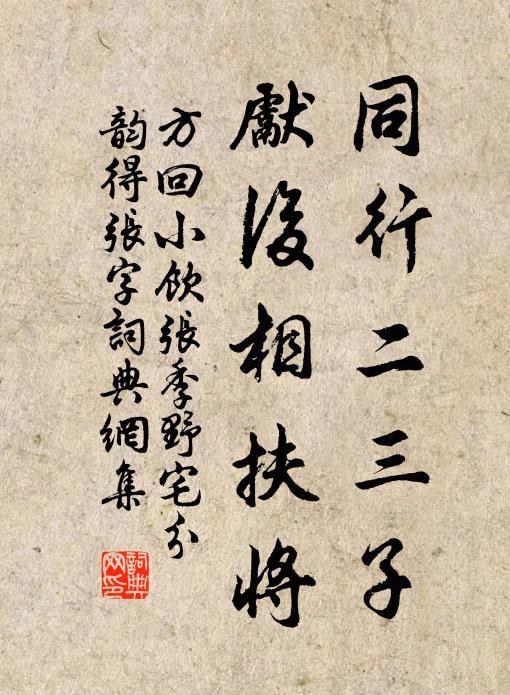 同行二三子
獻後相扶將
方回小飲張季野宅分
韵得張字詞典網集
詞典
网印